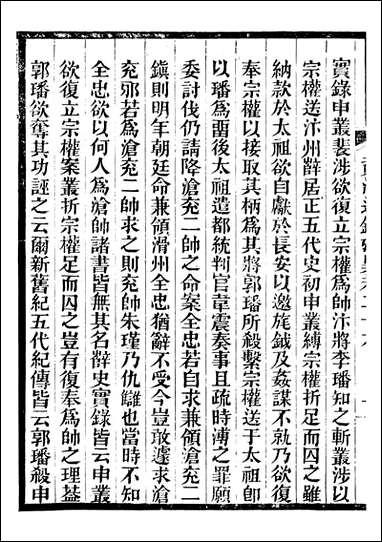 實錄申叢裴涉欲復立宗權為帥汴將李璠知之斬叢涉以
宗權送汴州薛居正五代史初申叢縛宗權折足而囚之雖
納款於太祖欲自獻於長安以邀旄鉞及姦謀不孰乃欲復
奉宗權以接取其柄爲其將郭璠所殺繫宗權送于太祖卽
以璠爲畱後太祖遣都統判官韋震奏事且疏時溥之罪願
委討伐仍請降滄兖二帥之命案全忠若自求兼領滄兖二
鎭則明年朝廷命兼領滑州全忠猶辭不受今豈敢遽求滄
兖邪若爲滄兖二帥求之則兖帥朱瑾乃仇讎也當時不知
全忠欲以何人爲滄帥諸書皆無其名薛史實錄皆云申叢
欲復立宗權案叢折宗權足而囚之豈有復奉爲帥之理葢
郭璠欲奪其功誣之云爾新舊紀五代紀傳皆云郭璠殺申